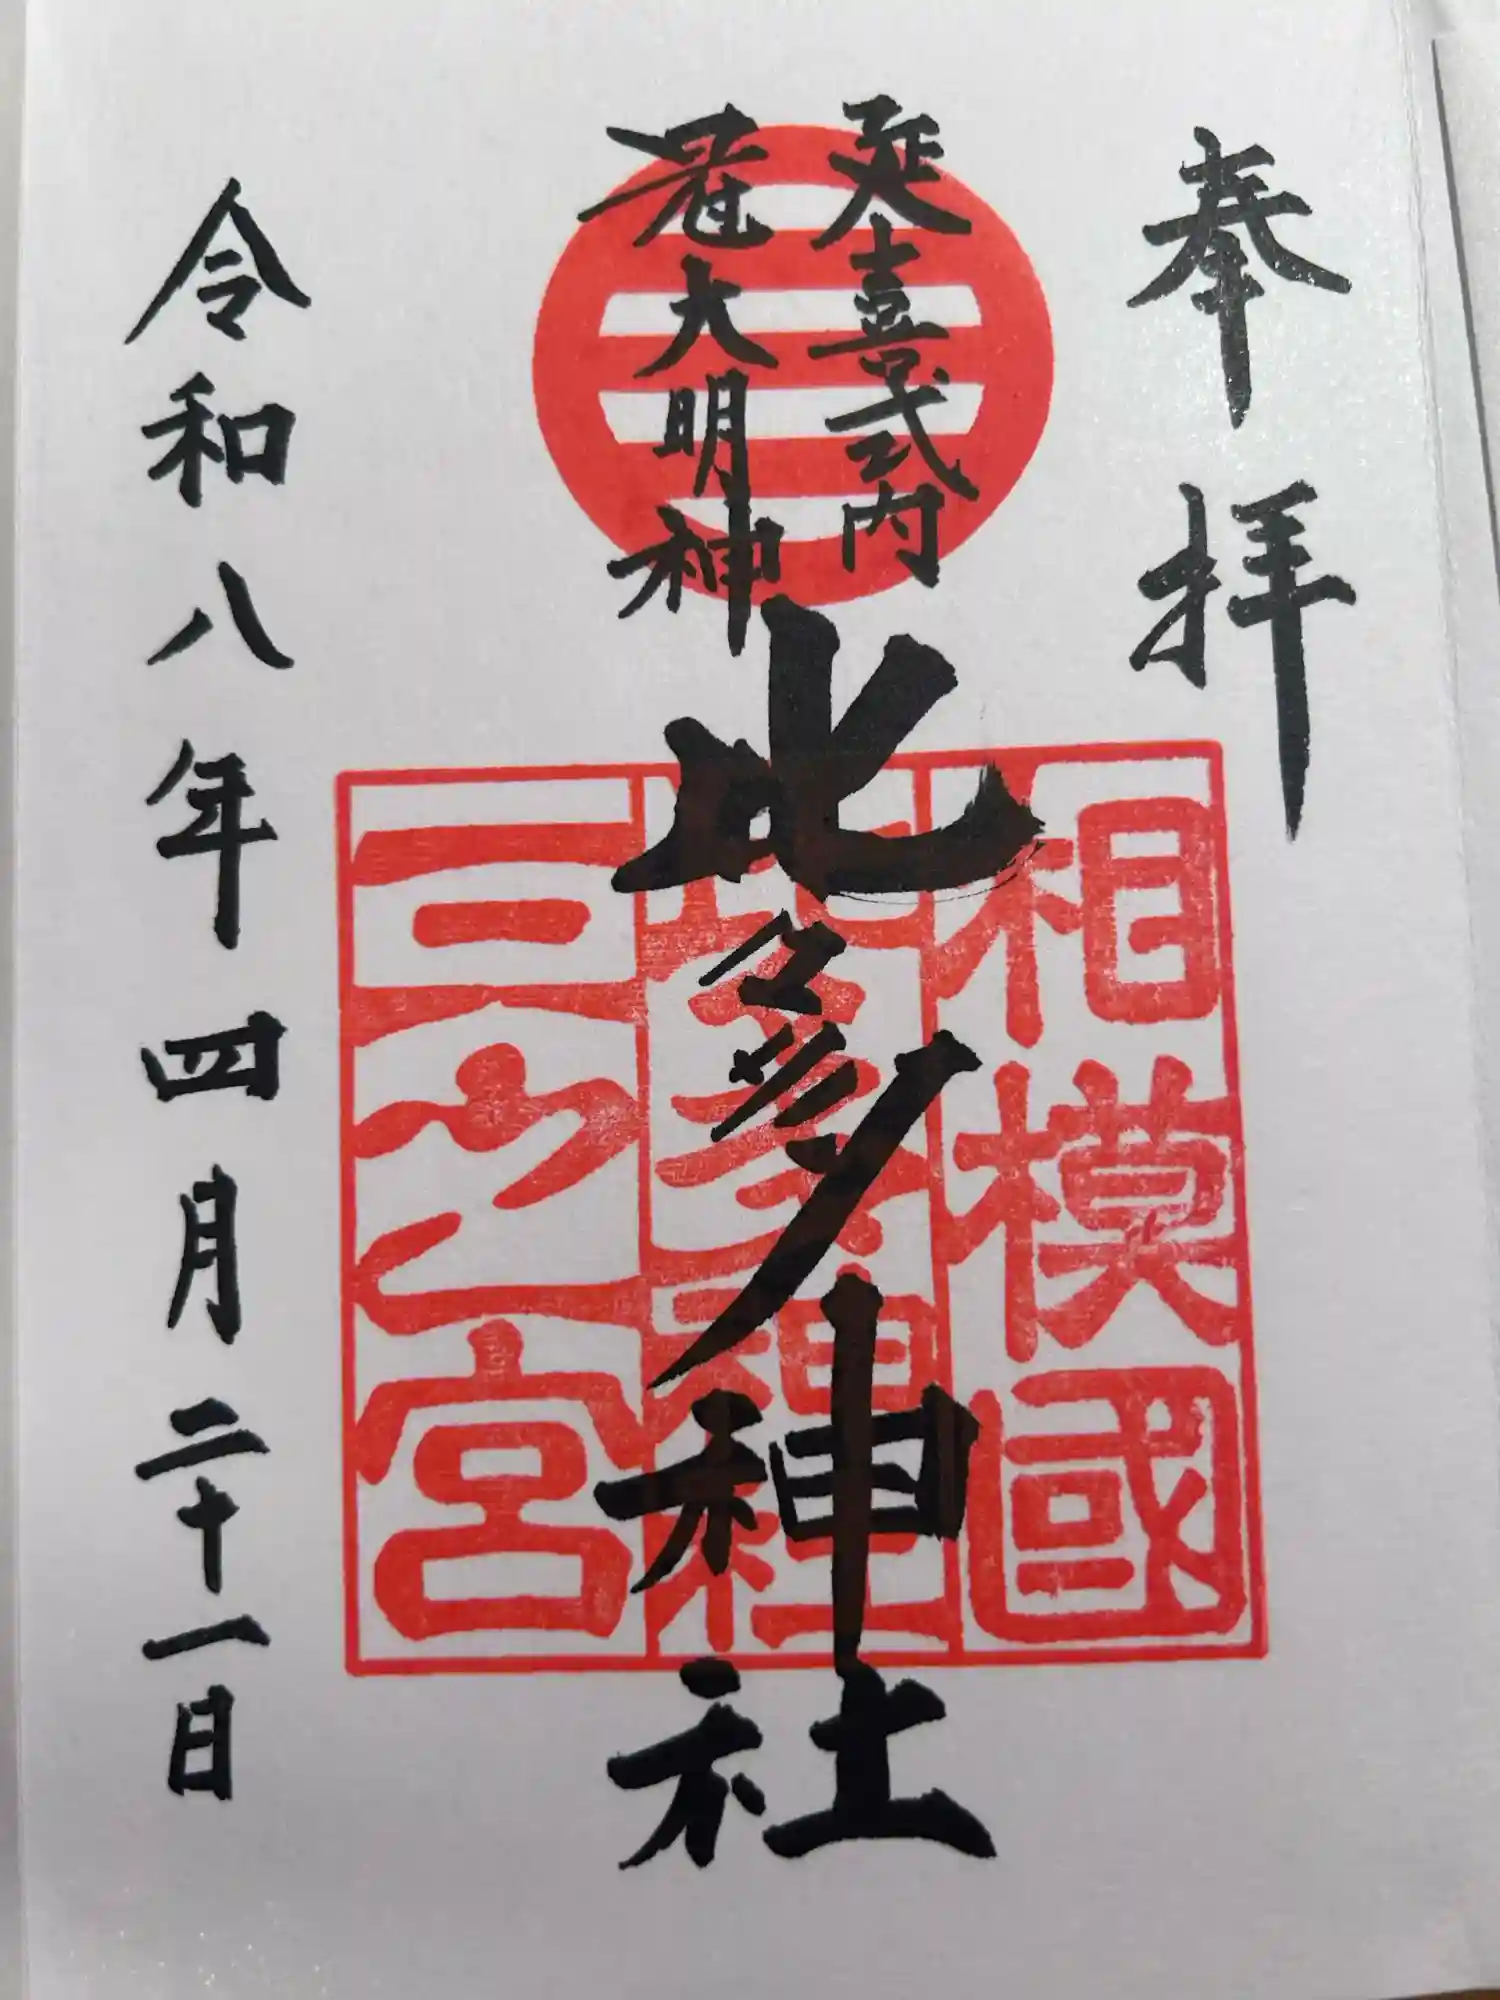 奉拝
延喜式内
冠大明神
比々多神社
令和八年四月二十一日
相模國
三之宮